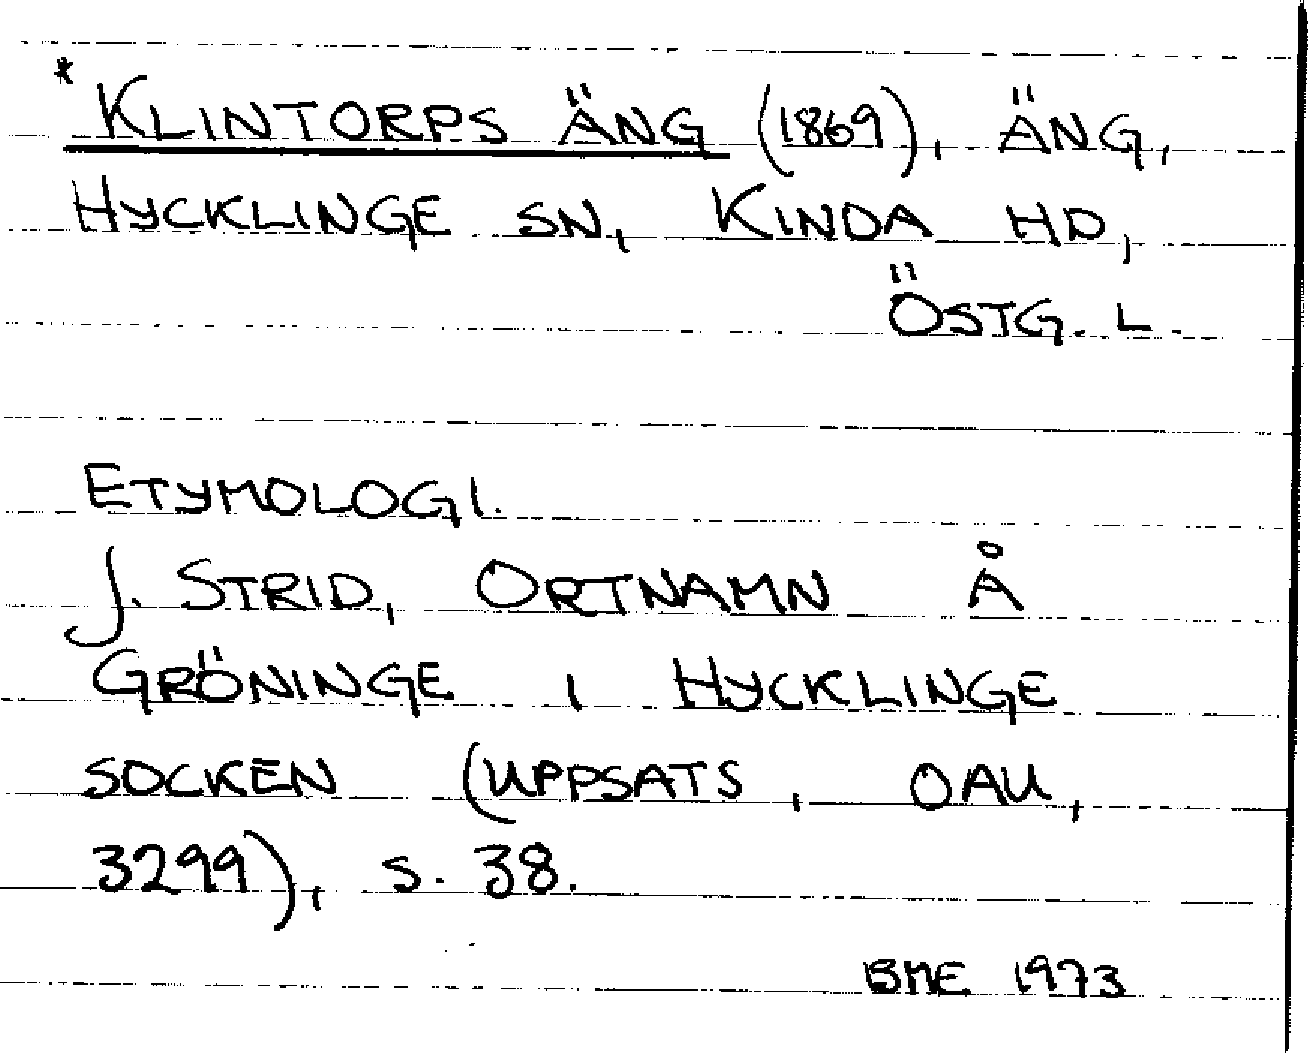 * KLINTORPS ÄNG (1869), ÄNG,
HYCKLINGE SN, KINDA HD,
ÖSTG. L.
ETYMOLOGI.
J. STRID, ORTNAMN Å
GRÖNINGE I HYCKLINGE
SOCKEN (UPPSATS, OAU,
3299), S. 38.
BME 1973